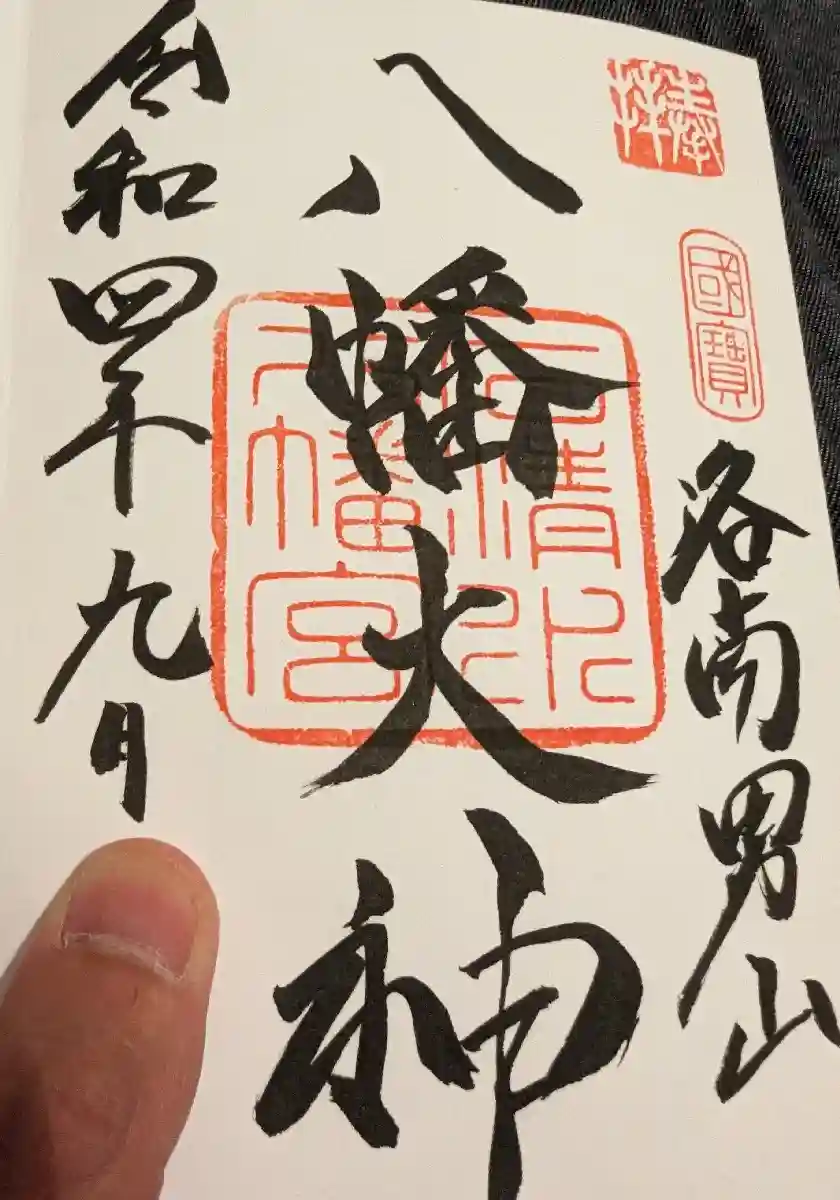 奉拝
國寶
洛南男山
八幡大神
石清水
八幡宮
令和四年九月